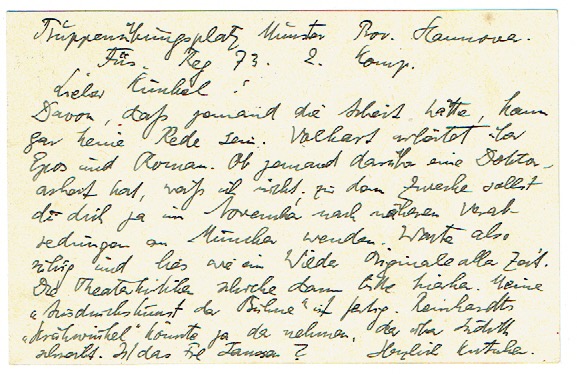 Truppenübungsplatz Munster Prov. Hannover.
Füs. Reg 73. 2. Komp.
Lieber Künkel!
Davon, daß jemand die Arbeit hätte, kann
gar keine Rede sein. Volkart arbeitet über
Epos und Roman. Ob jemand darüber eine Doktor-
arbeit hat, weiß ich nicht, zu dem Zwecke sollst
du dich ja im November nach näheren Verab-
redungen an Muncker wenden. Warte also
ruhig und lies wie ein Wilder Originale aller Zeit.
Die Theaterkritiken schicke dann bitte hierher. Meine
"Ausdruckskunst der Bühne" ist fertig. Reinhardts
"Krähwinkel" könnte ja der nehmen, der über
schreibt. Ist das Frl Janssen? Herzlich Kutscher.